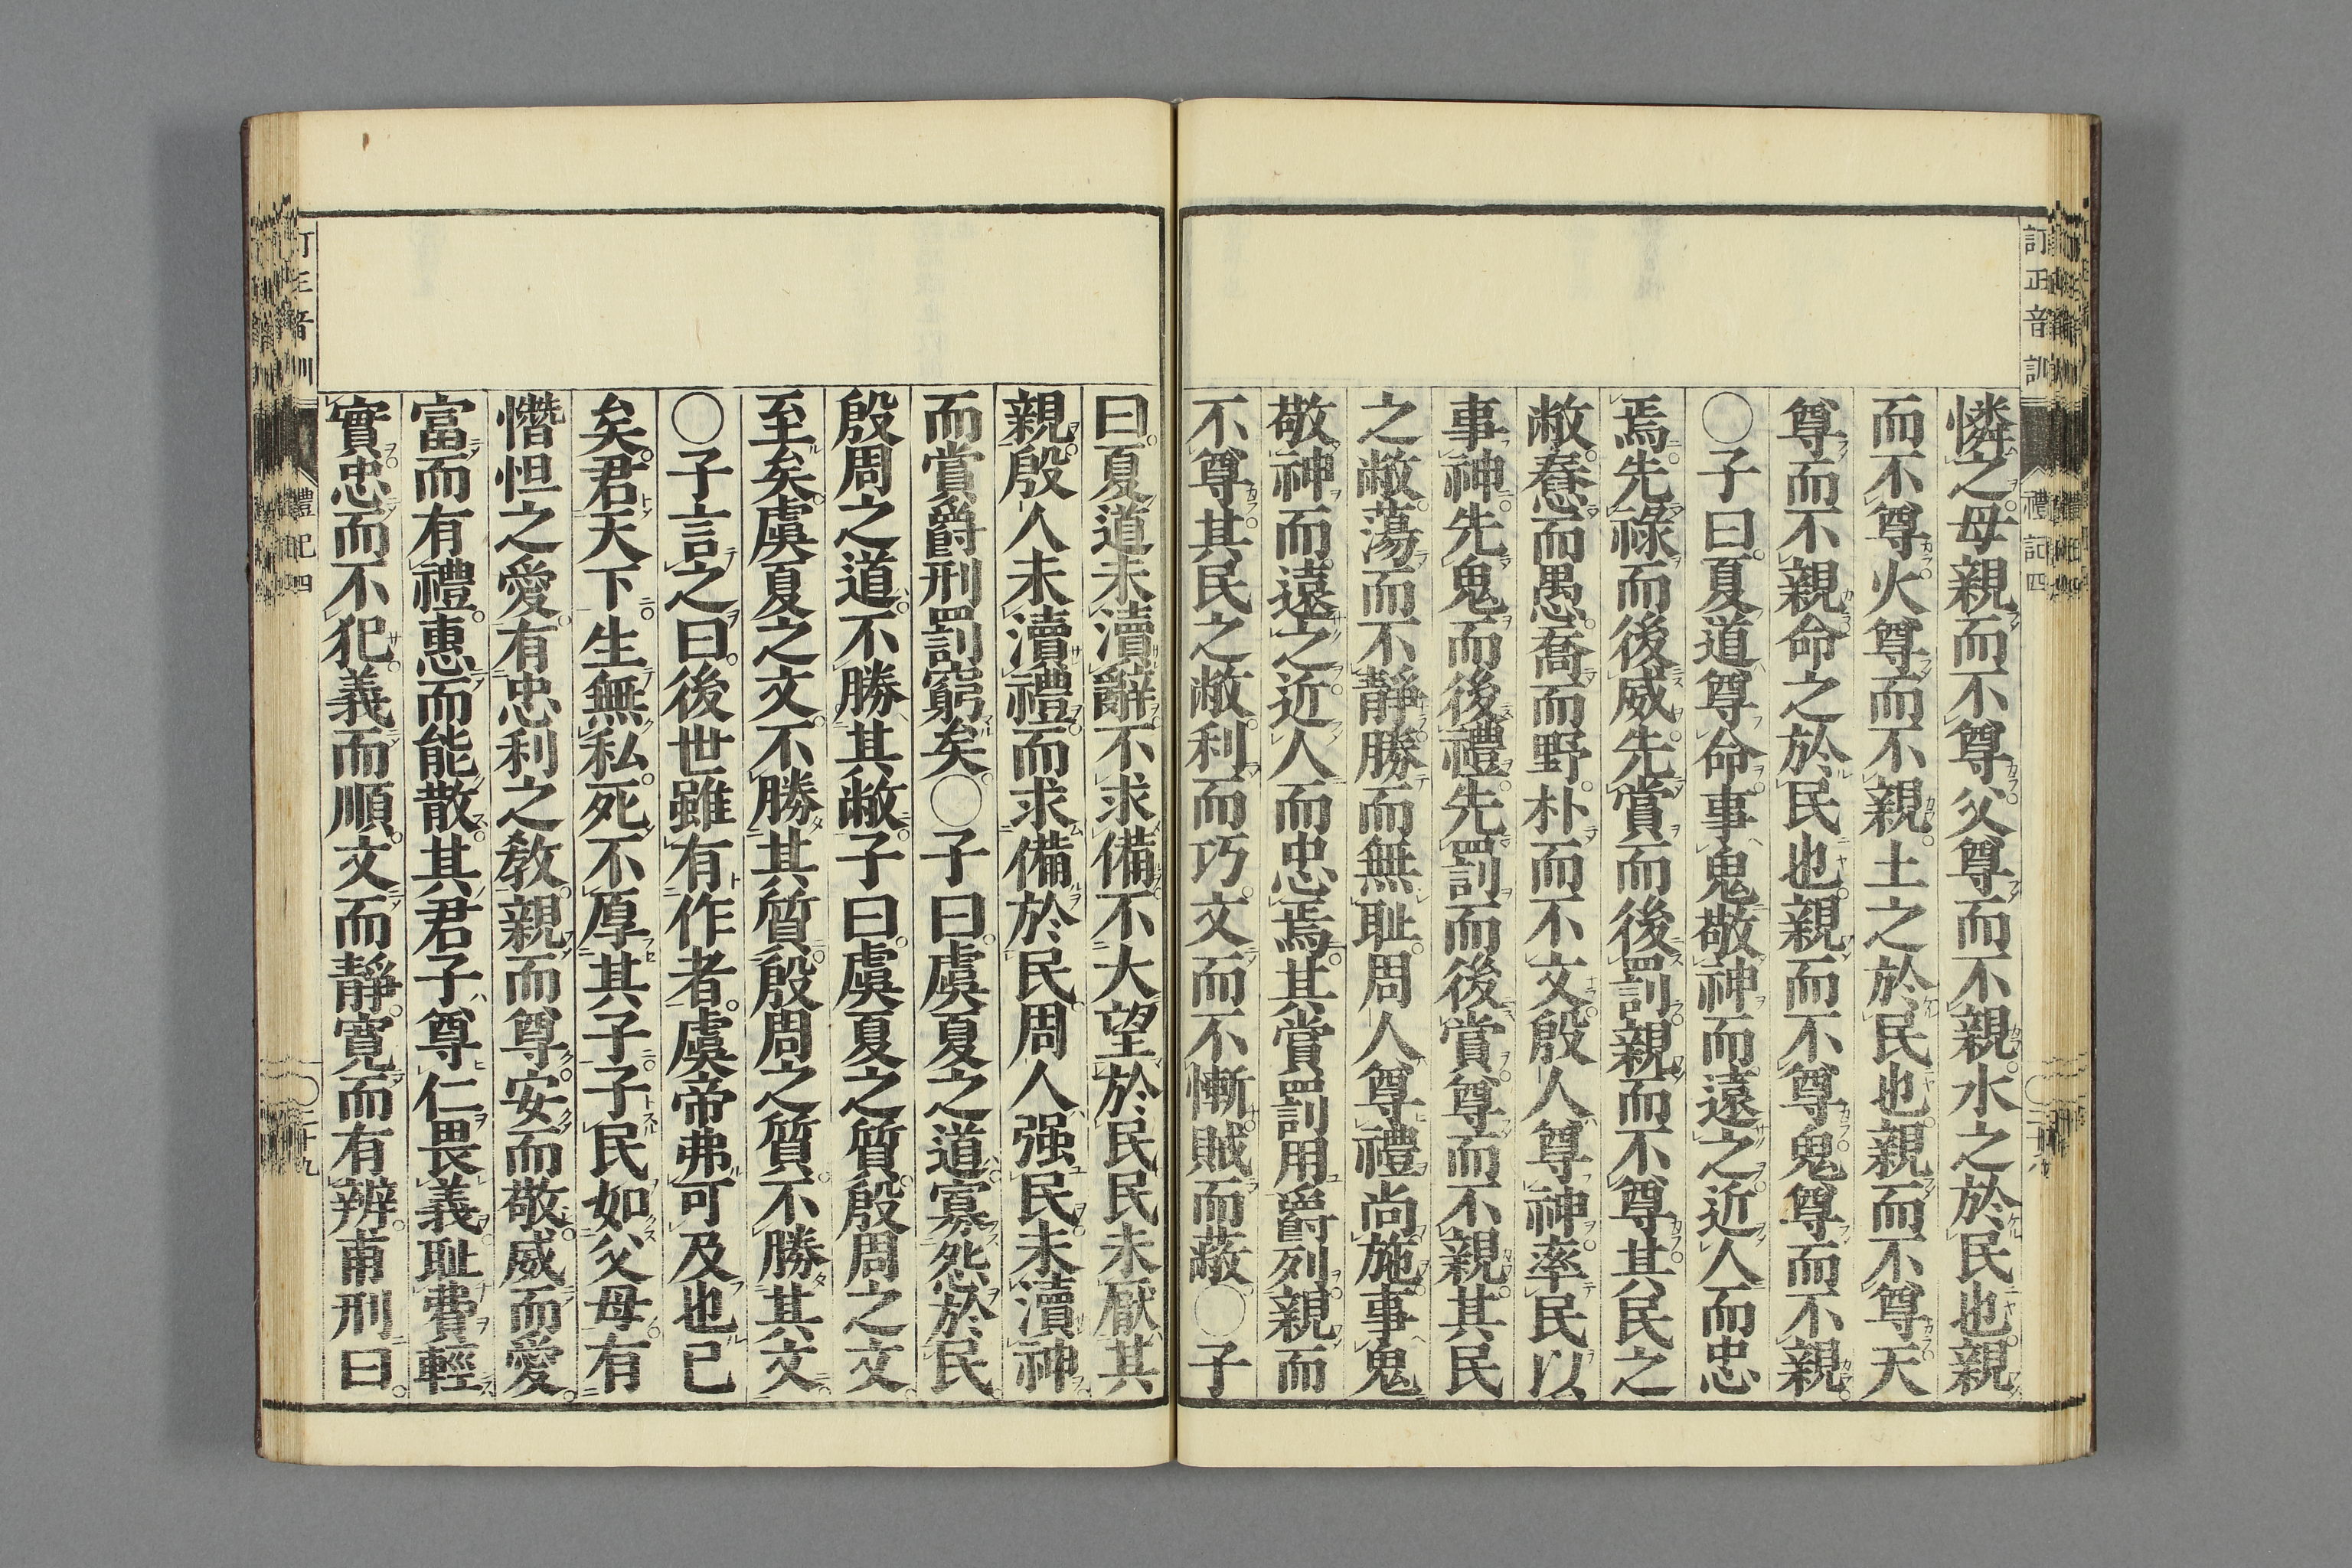 訂正音訓
禮記四
憐之母親而不尊父尊而不親水之於民也親
而不尊火尊而不親土之於民也親而不尊天
尊而不親命之於民也親而不尊鬼尊而不親
〇子曰夏道尊命事鬼敬神而遠之近人而忠
焉先祿而後威先賞而後罰親而不尊其民之
敝惷而愚喬而野朴而不文殷人尊神率民以
事神先鬼而後禮先罰而後賞尊而不親其民
之敝蕩而不靜勝而無耻周人尊禮尚施事鬼
敬神而遠之近人而忠焉其賞罰用爵列親而
不尊其民之敝利而巧文而不慚賊而蔽〇子
曰夏道未瀆辭不求備不大望於民民未厭其
親殷人未瀆禮而求備於民周人强民未瀆神
而賞爵刑罰窮矣〇子曰虞夏之道寡怨於民
殷周之道不勝其敝子曰虞夏之質殷周之文
至矣虞夏之文不勝其質殷周之質不勝其文
〇子言之曰後世雖有作者虞帝弗可及也已
矣君天下生無私死不厚其子子民如父母有
憯怛之愛有忠利之教親而尊安而敬威而愛
富而有禮惠而能散其君子尊仁畏義耻費輕
實忠而不犯義而順文而靜寬而有辨甫刑曰
訂正音訓
禮記四